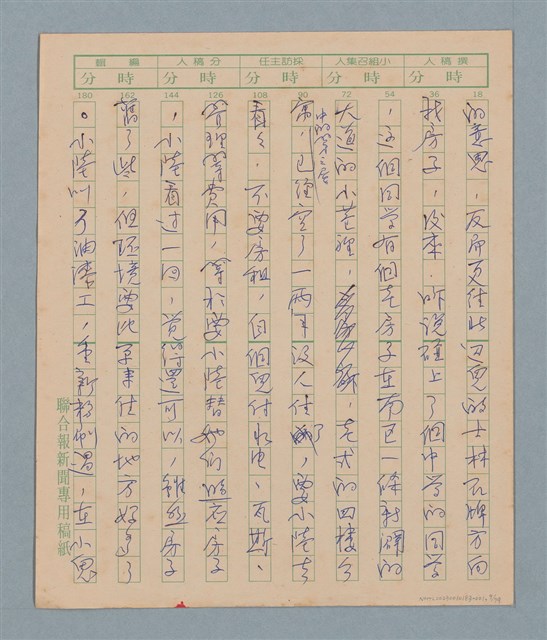 撰稿人 小組召集人 採訪主任 分稿人 編輯
時 分 時 分 時 分 時 分 時 分
18 36 54 72 90 108 126 144 162 180
的意思，反而更往北邊兒的士林石牌方向
找房子，後來，昨說碰上了個中學的同學
，這個同學有個老房子在南邑一條新闢的
大道的小巷裡，老式的四樓公
中的第三層
寓，已經空了一兩年沒人住了，要小陸去
看看，不要房租，自個兒付水電、瓦斯、
管理等費用，等於要小陸替她們照看房子
，小陸看過一回，覺得還可以，雖然房子
舊了些，但環境要比原來住的地方好多了
。小陸叫了油漆工，重新粉刷過，在小鬼
聯合報新聞專用稿紙